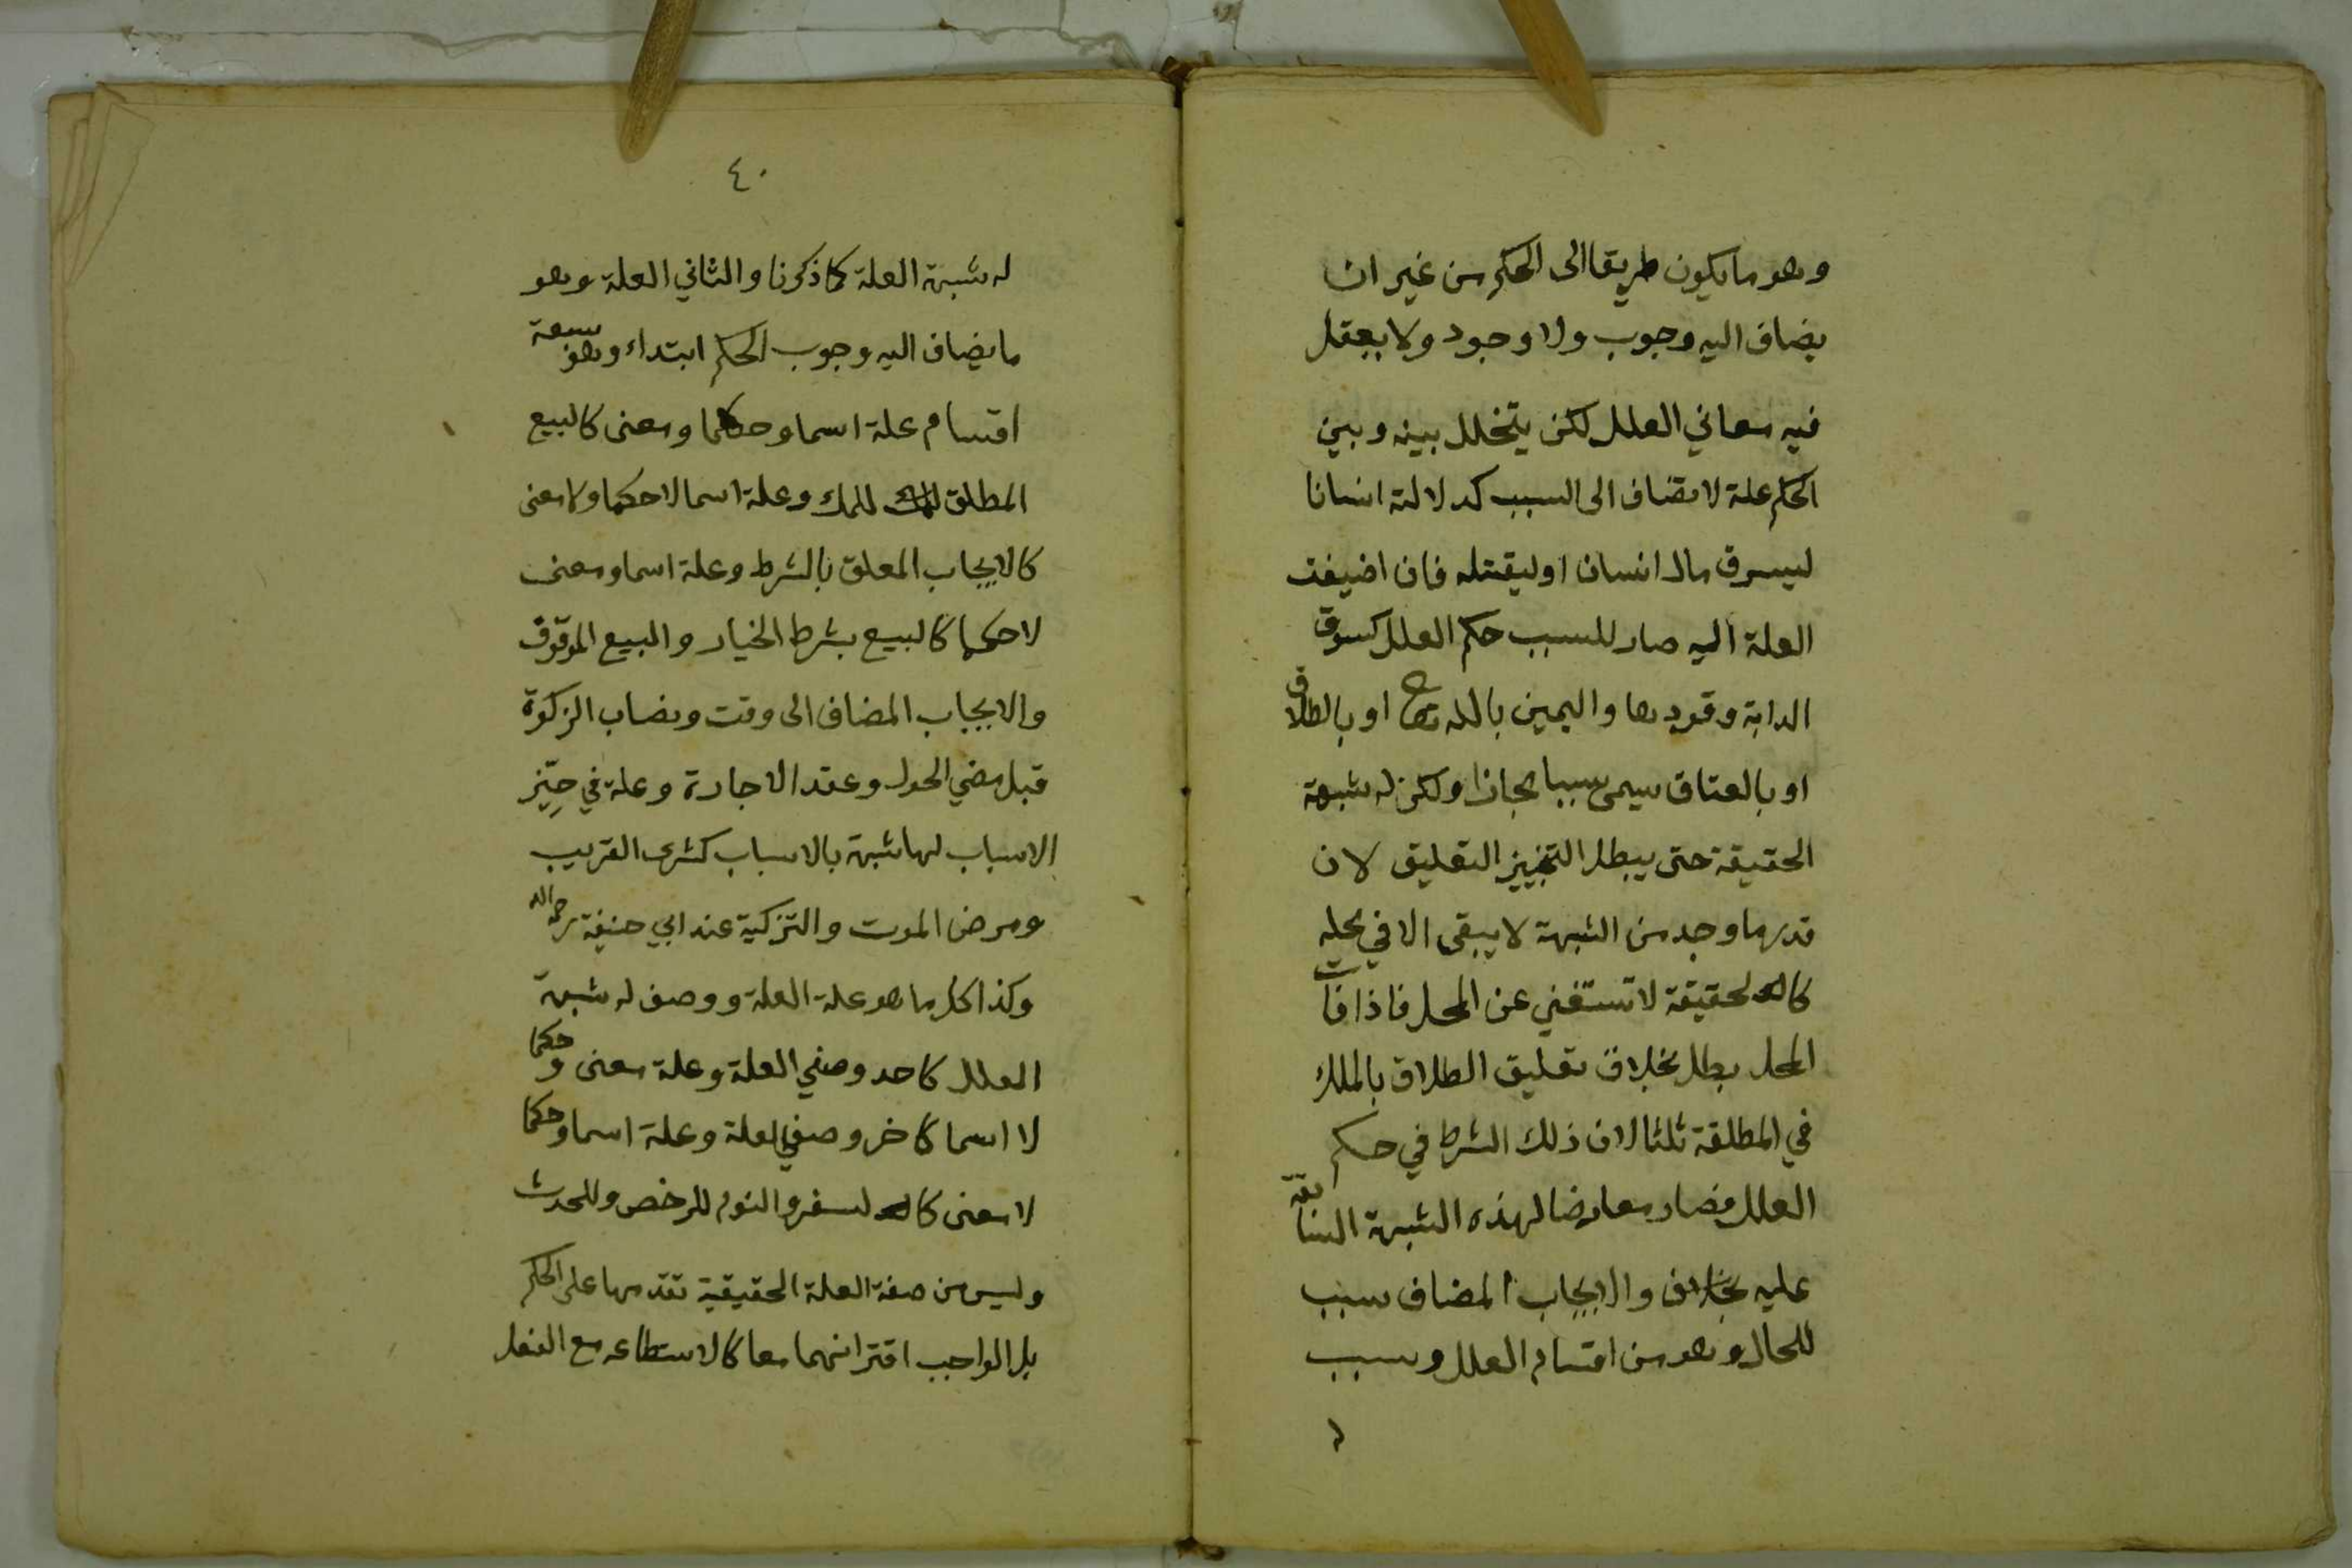 وهو ما يكون طريقا الى الحكم من غير ان
يضاف اليه وجوب ولا وجود ولا يعقل
فيه معاني العلل لكن يتخلل بينه وبين
الحكم علة لا تضاف الى السبب كدلالة انسانا
ليسرق مال انسان او ليقتله فان اضيفت
العلة اليه صار للسبب حكم العلل كسوق
الدابة وقودها واليمين بالله تعالى او بالطلاق
او بالعتاق سيمى سببا مجازا ولكن له شبهة
الحقيقة حتى يبطل التنجيز التعليق لان
قدر ما وجد من الشبهة لا يبقى الا في محله
كالحقيقة لا تستغني عن المحل فاذا فات
المحل بطل بخلاف تعليق الطلاق بالملك
في المطلقة ثلثا لان ذلك الشرط في حكم
العلل فصار معارضا لهذه الشبهة السابقة
عليه والايجاب المضاف سبب
للحال وهو من اقسام العلل وسبب
٤٠
له شبهة العلة كما ذكرنا والثاني العلة وهو
ما يضاف اليه وجوب الحكم ابتداء وهو سبعة
اقسام علة اسما وحكما ومعنى كالبيع
المطلق للملك وعلة اسما لا حكما ولا معنى
كالايجاب المعلق بالشرط وعلة اسما ومعنى
لا حكما كالبيع بشرط الخيار والبيع الموقوف
والايجاب المضاف الى وقت ونصاب الزكوة
قبل مضي الحول وعقد الاجارة وعلة في حيّز
الاسباب لها شبهة بالاسباب كشرى القريب
ومرض الموت والتزكية عند ابي حنيفة رحمه الله
وكذا كل ما هو علة العلة ووصف له شبهة
العلل كاحد وصفي العلة وعلة معنى وحكما
لا اسما كاخر وصفي العلة وعلة اسما وحكما
لا معنى كالسفر والنوم للرخص وللحدث
وليس من صفة العلة الحقيقية تقدمها على الحكم
بل الواجب اقترانهما معا كالاستطاعه مع الفعل